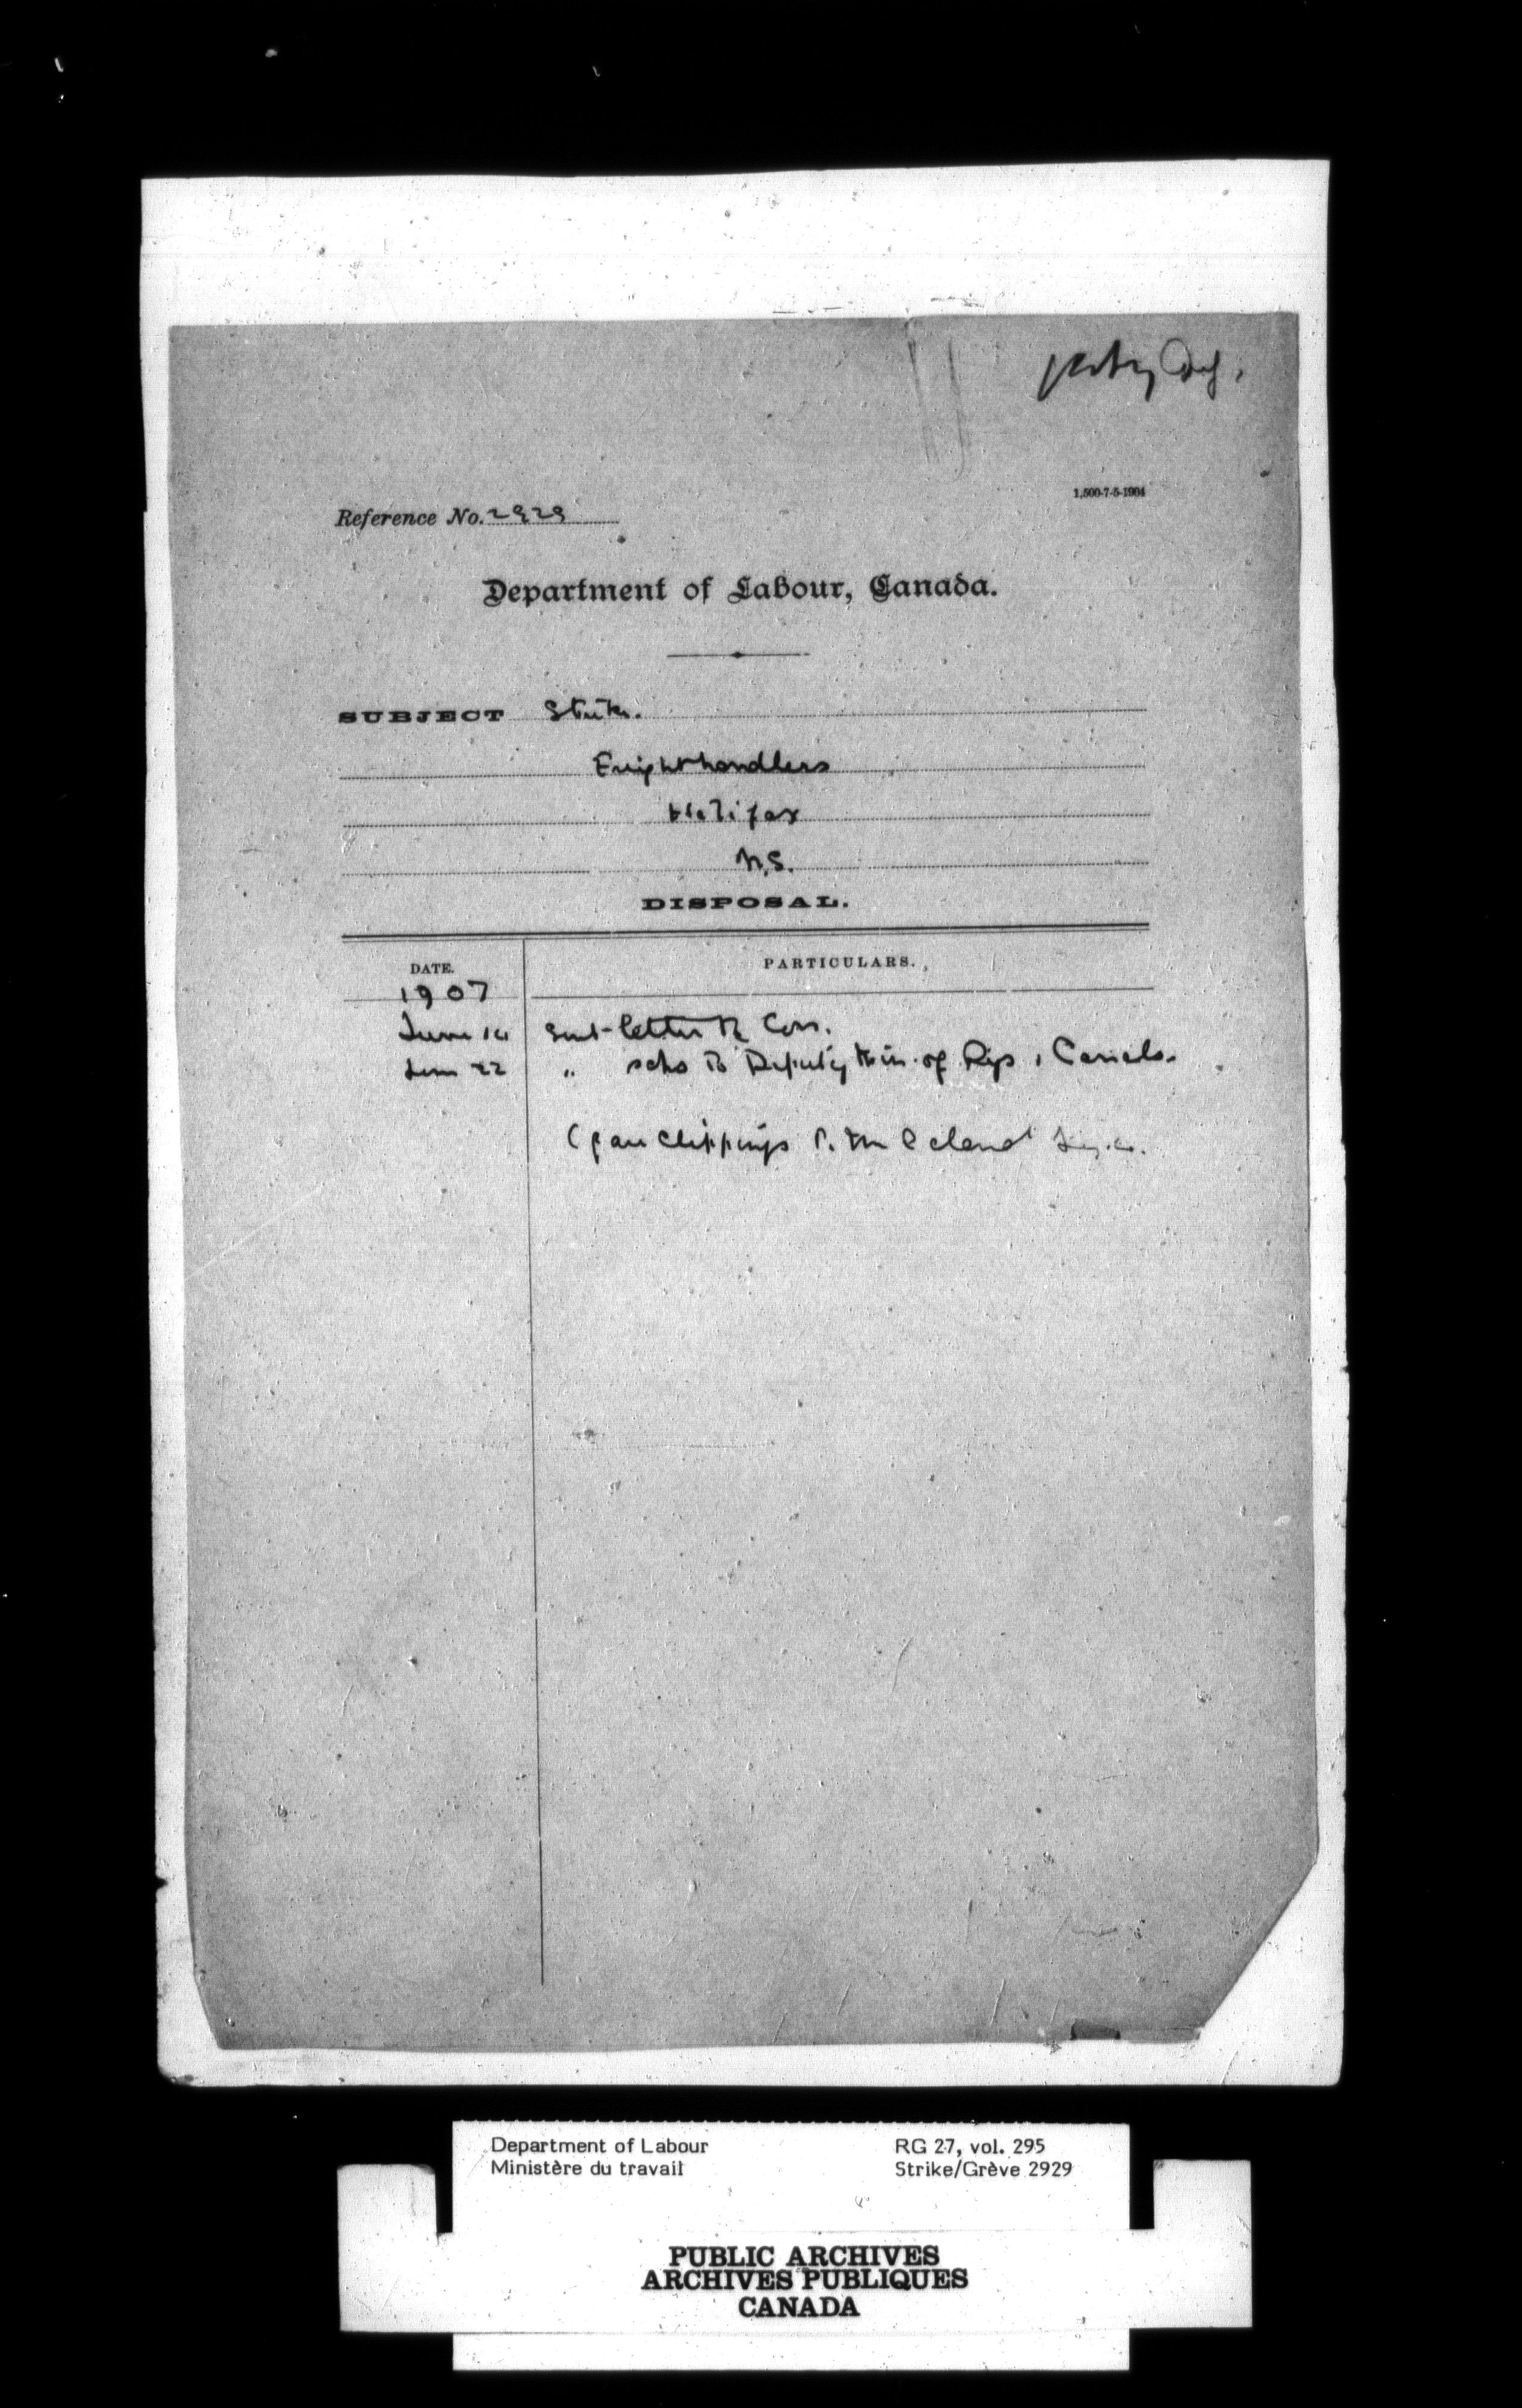 1,500-7-5-1904
Reference No. 2929
Department of Labour, Canada.
SUBJECT Strike.
Freighthandlers
Halifax
N.S.
DISPOSAL.
DATE. PARTICULARS.
1907
June 14 Sent letter to Corr.
June 22 " scho to Deputy Min. of Rys , Canals.
(gave clippings
Department of Labour RG 27, vol. 295
Ministère du travail Strike/Grève 2929
PUBLIC ARCHIVES
ARCHIVES PUBLIQUES
CANADA